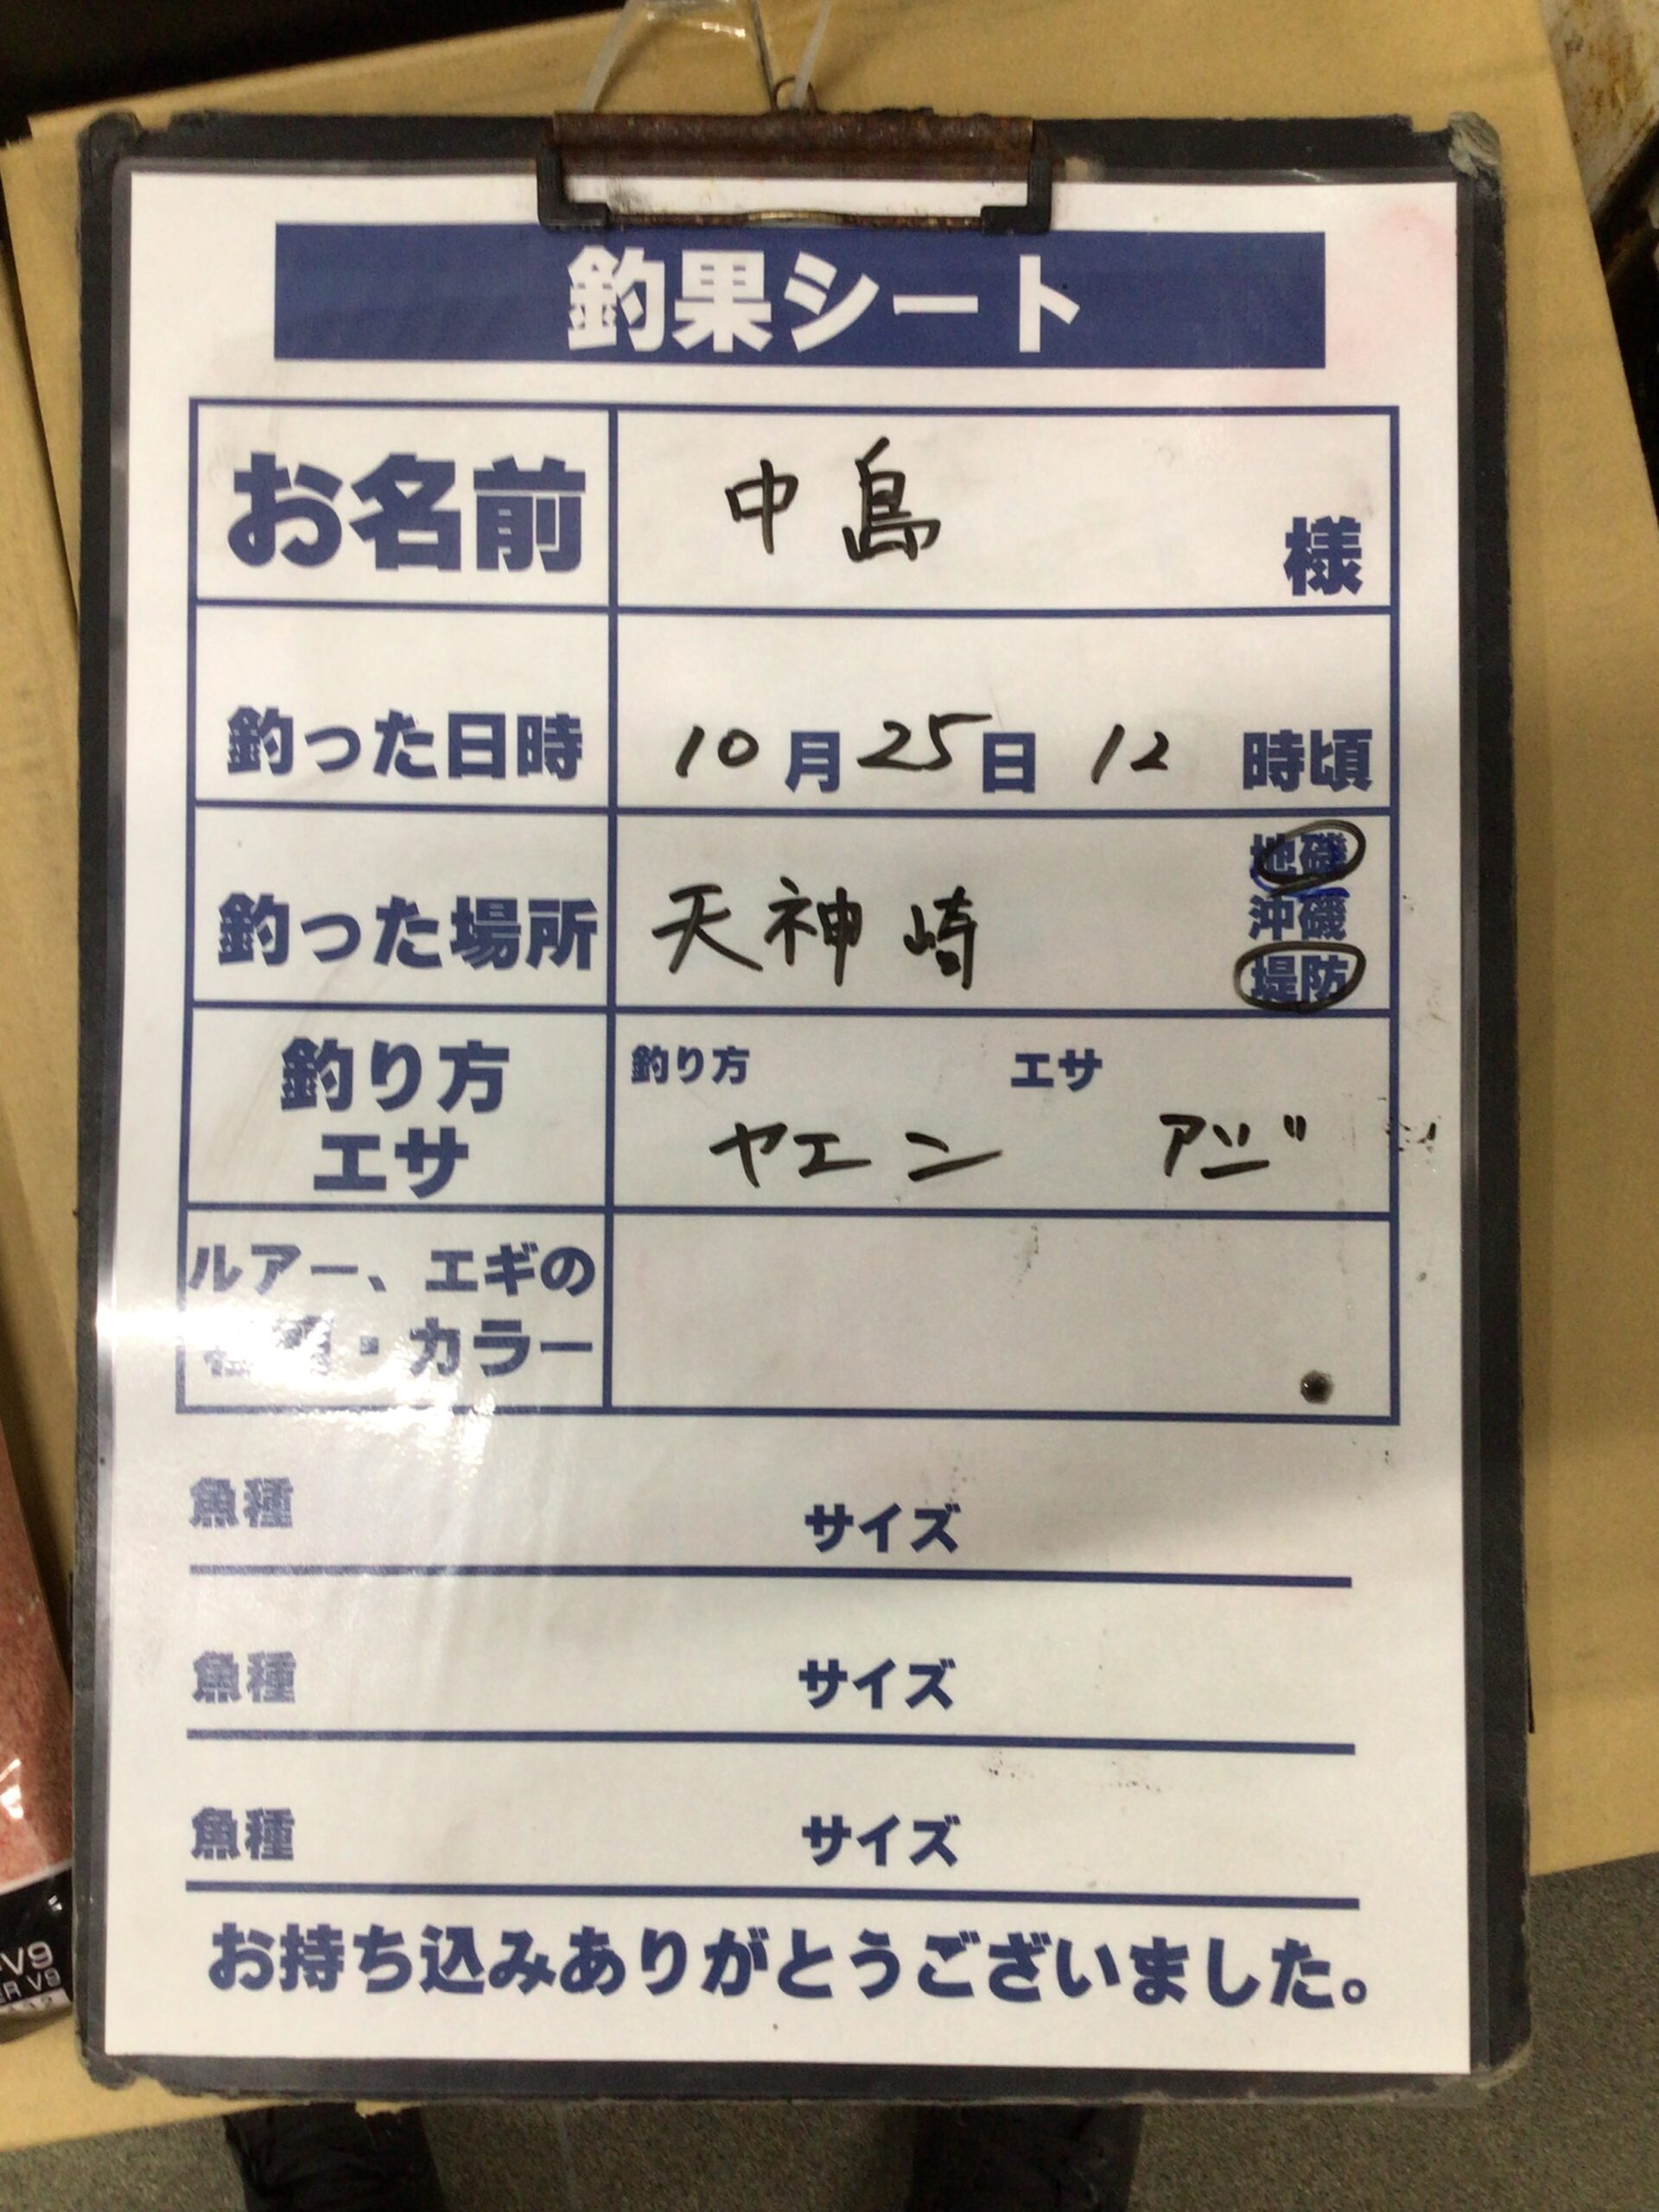 釣果シート
お名前 中島 様
釣った日時 10月25日 12 時頃
釣った場所 天神崎
地磯
沖磯
堤防
釣り方
エサ
釣り方 エサ
ヤエン アジ
ルアー、エギの
種類・カラー
魚種 サイズ
魚種 サイズ
魚種 サイズ
お持ち込みありがとうございました。
V9
ER V9